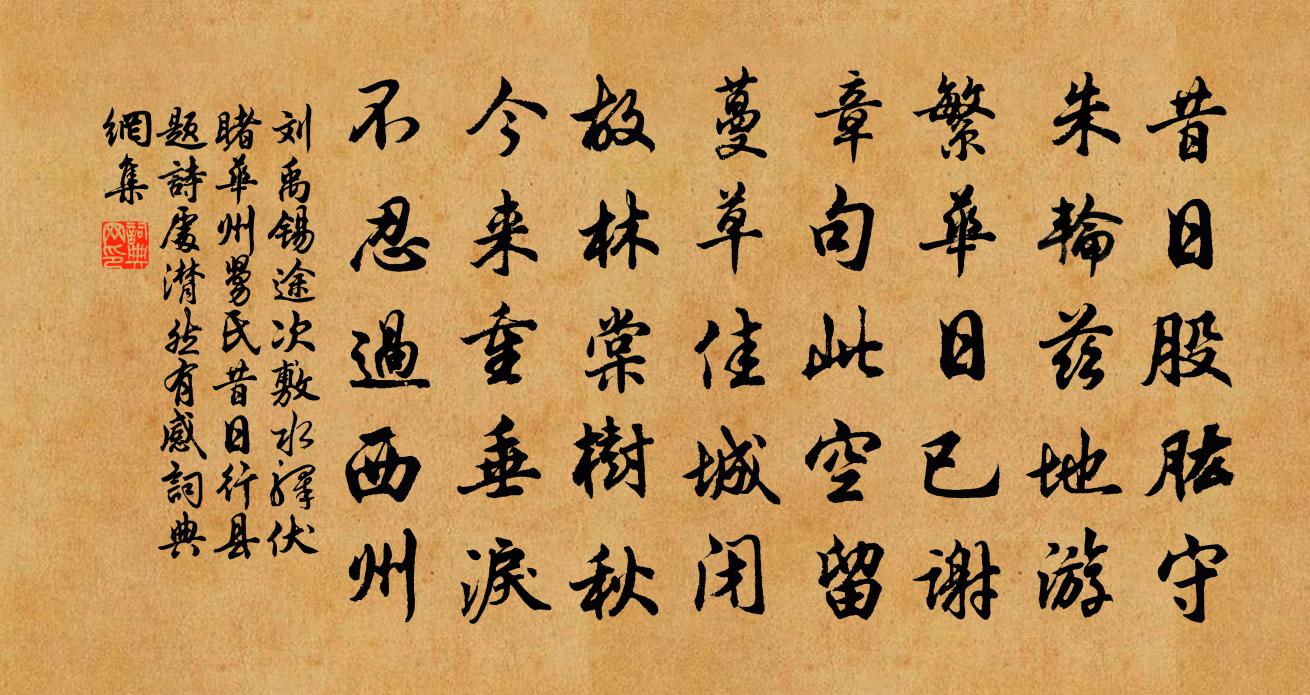 昔日股肱守
朱輪茲地游
繁華日已謝
章句此空留
蔓草佳城闭
故林棠樹秋
今来重垂淚
不忍過西州
刘禹锡途次敷水驛伏
睹華州舅氏昔日行县
题詩處潸然有感詞典
網集
詞典
网印